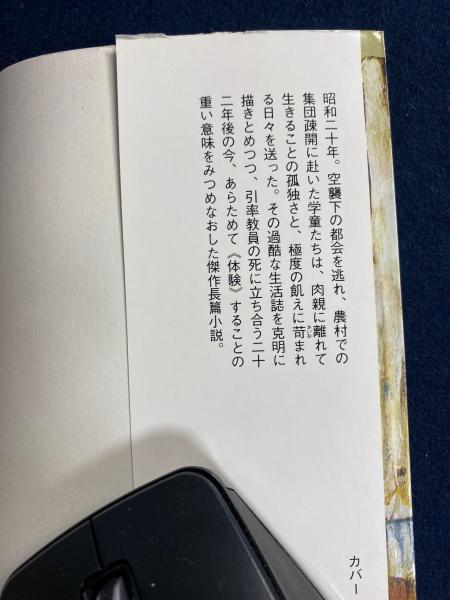 昭和二十年。空襲下の都会を逃れ、農村での
集団疎開に赴いた学童たちは、肉親に離れて
生きることの孤独さと、極度の飢えに苛まれ
る日々を送った。その過酷な生活誌を克明に
描きとめつつ、引率教員の死に立ち合う二十
二年後の今、あらためて《体験》することの
重い意味をみつめなおした傑作長篇小説。
カバー